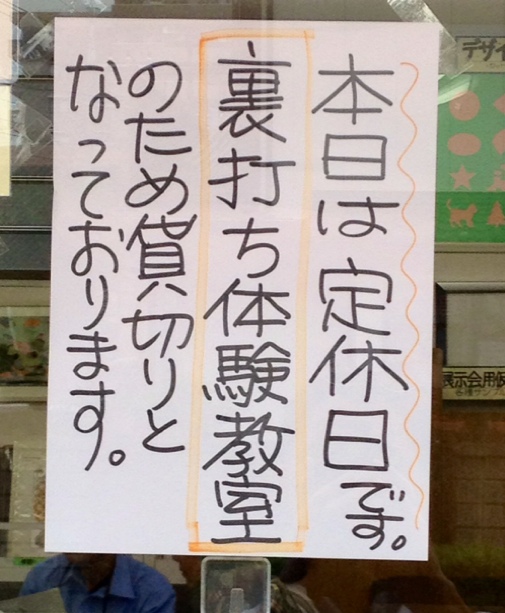 本日は定休日です。
裏打ち体験教室
のため貸切りと
なっております。
デザイ
展示会用仮